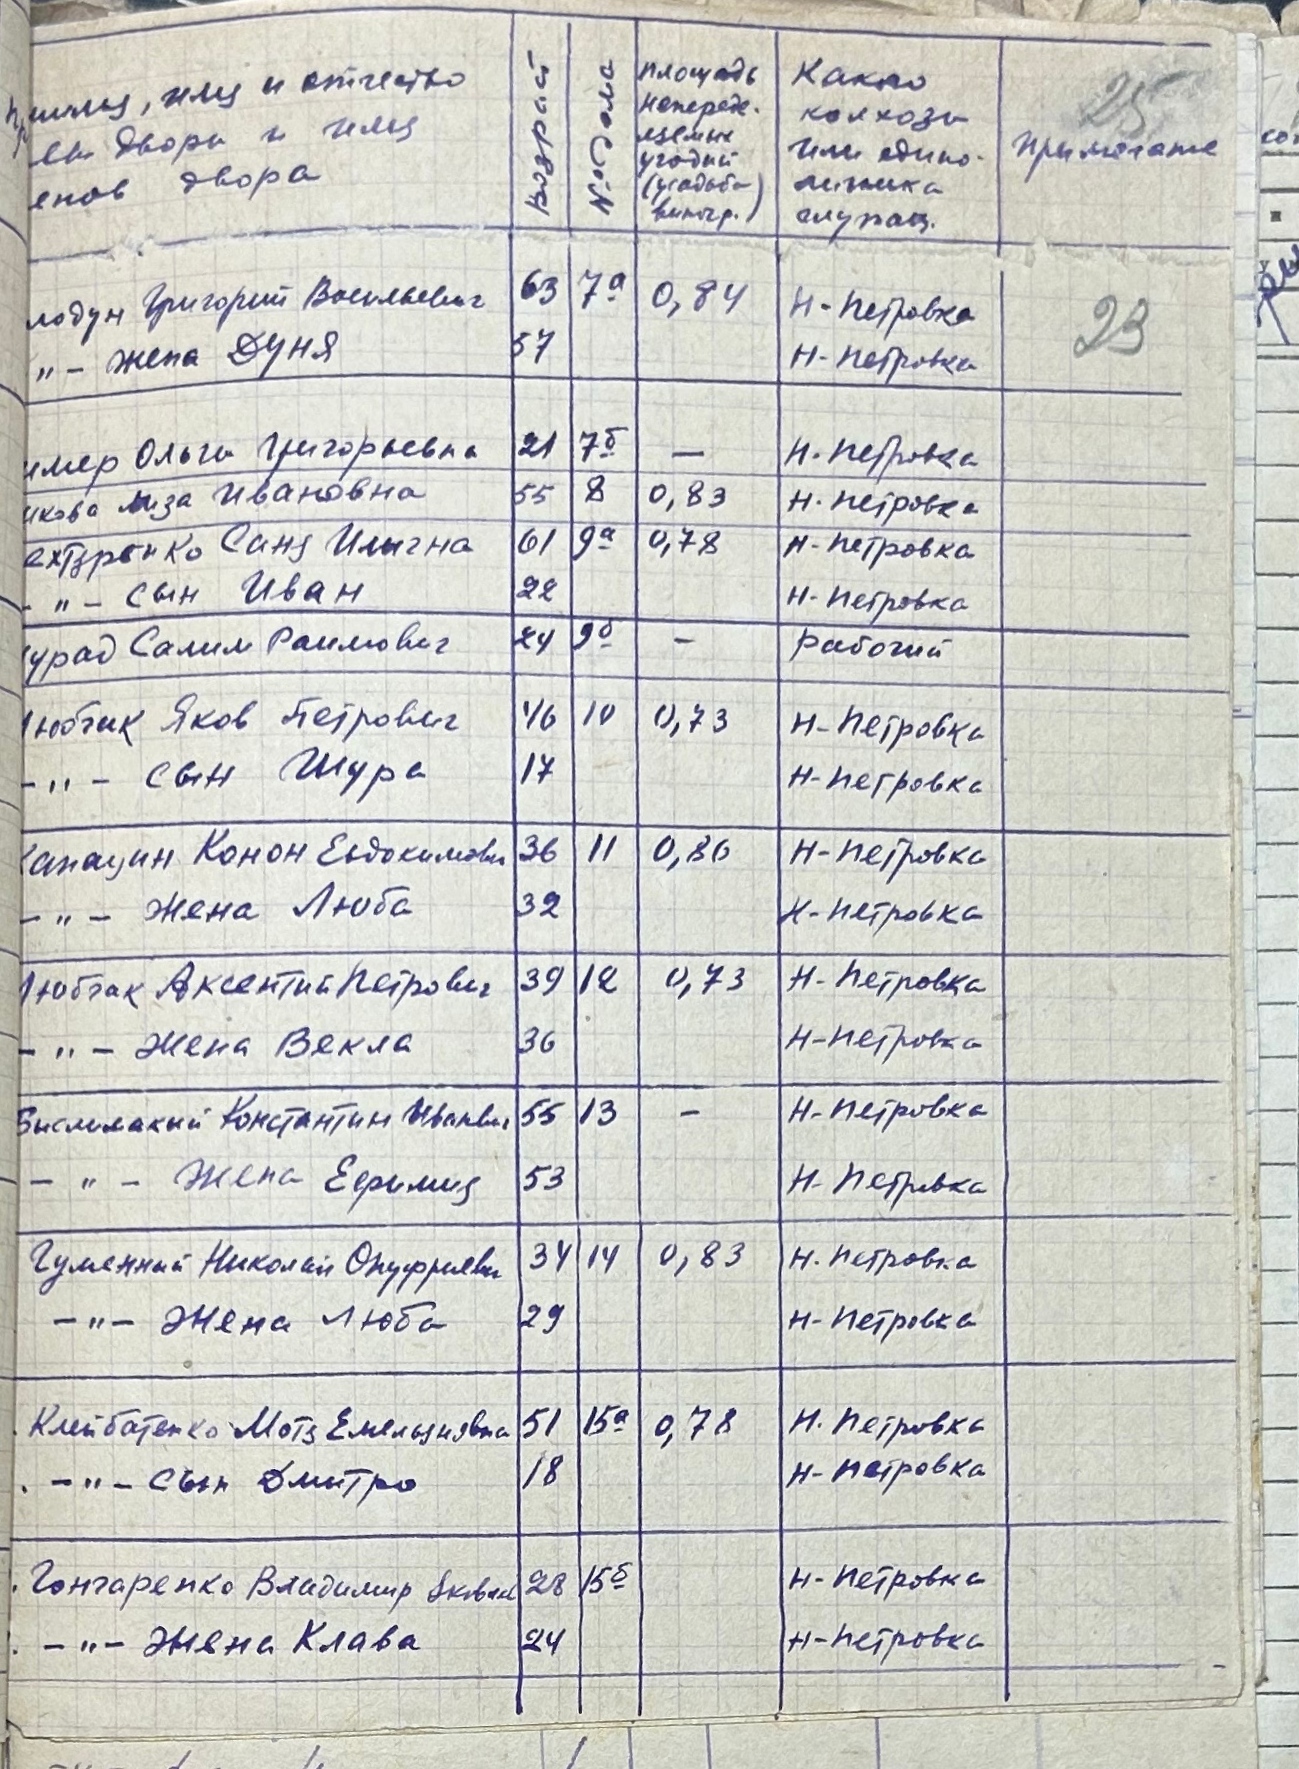 имя и отчество Возраст №№ дома площадь Какого 25
двора и имя непередк. колхоза Примечание
енов двора угодий или едино-
(усадьба личника
виногр.)
лодун Григорий Васильевич 63 7а 0,84 Н-Петровка 23
-"- жена Дуня 57 Н-Петровка
имер Ольга Григорьевна 21 7б — Н-Петровка
икова Лиза Ивановна 55 8 0,83 Н-Петровка
ехтеренко Саня Ильична 61 9а 0,78 Н-Петровка
-"- сын Иван 22 Н-Петровка
урад Салим Раимович 24 9б - Рабочий
Любчик Яков Петрович 46 10 0,73 Н-Петровка
-"- сын Шура 17 Н-Петровка
Капацин Конон Евдокимович 36 11 0,86 Н-Петровка
-"- Жена Люба 32 Н-Петровка
Любчак Аксентий Петрович 39 12 0,73 Н-Петровка
-"- Жена Векла 36 Н-Петровка
Константин Иванович 55 13 - Н-Петровка
-"- Жена Ефимия 53 Н-Петровка
Гуменный Николай Онуфриевич 34 14 0,83 Н-Петровка
-"- Жена Люба 29 Н-Петровка
Клейбатенко Мотя Емельяновна 51 15а 0,78 Н-Петровка
-"- Сын Дмитро 18 Н-Петровка
Гончаренко Владимир Яковлев 28 15б Н-Петровка
-"- Жена Клава 24 Н-Петровка